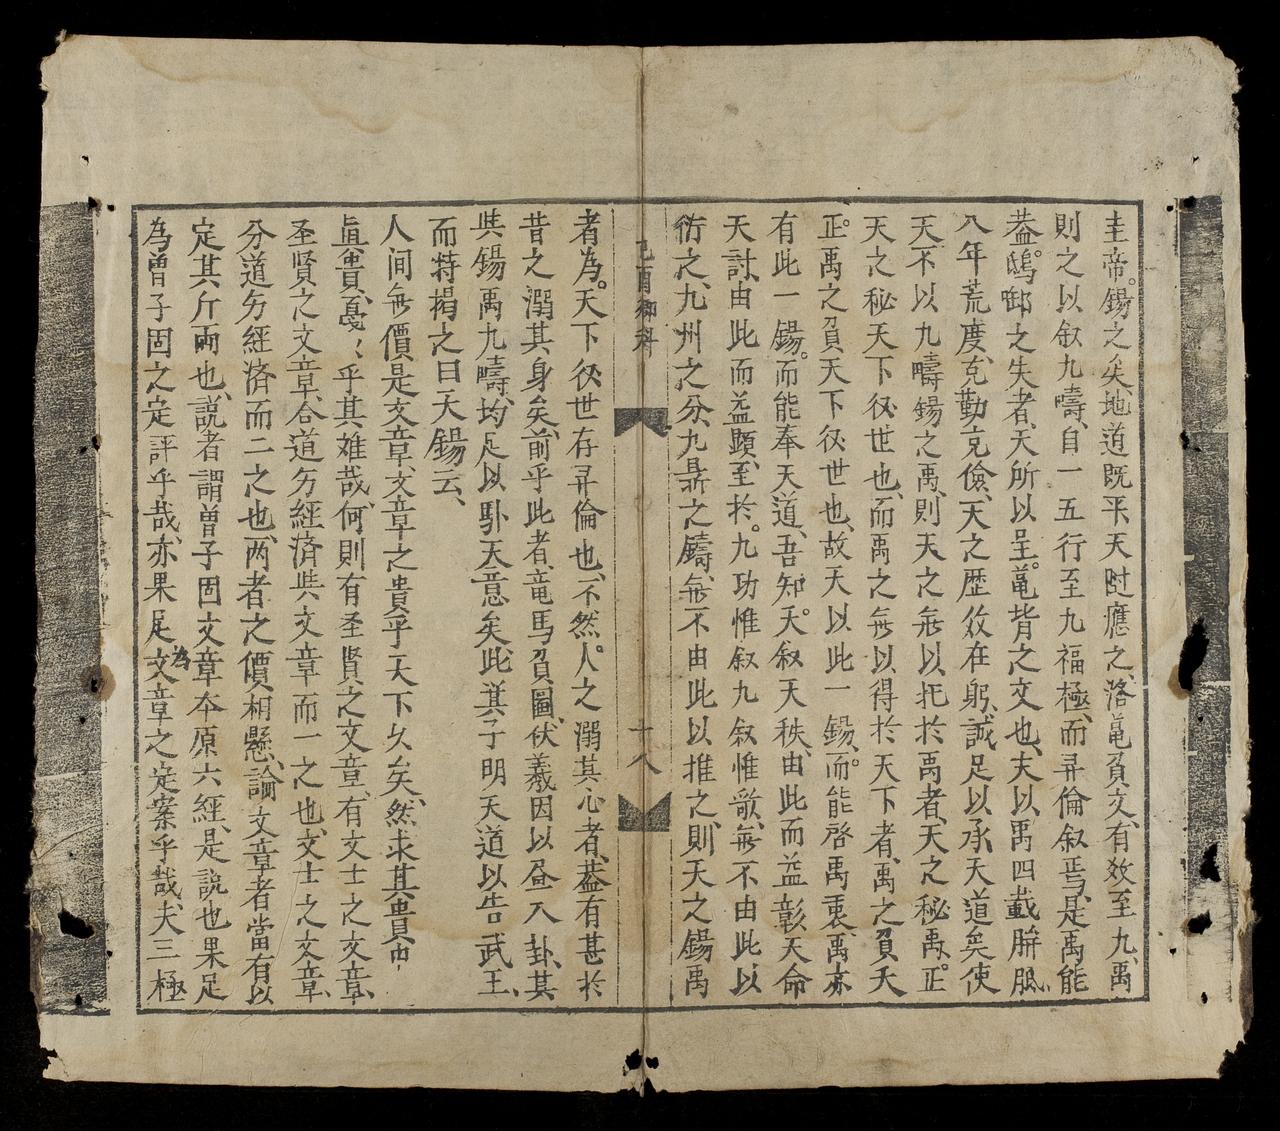 圭帝。錫之矣、地道既平天时應之、洛亀負文、有效至九、禹
則之以叙九疇、自一五行至九福極、而彛倫叙焉、是禹能
葢。鴟
之失者、天所以呈。亀背之文也、夫以禹四載胼胝、
八年荒度、克勤克儉、天之歴效在躬、誠足以承天道矣使
天不以九疇錫之禹、則天之無以托於禹者、天之秘禹。正
天之秘天下後世也、而禹之無以得於天下者、禹之負天
正。禹之負天下後世也、故天以此一錫。而能啓禹裏、禹亦
有此一錫。而能奉天道、吾知天。天叙天秩、由此而益彰天命
天討、由此而益顕、至於。九功惟叙九叙惟歌、無不由此以
衍之、九州之分、九鼎之鑄、無不由此以推之、則天之錫禹
己酉鄉科
十八
者為。天下後世存彛倫也、不然。人之溺其心者、葢有甚於
昔之溺其身矣、前乎此者、竜馬負圖、伏羲因以昼八卦、其
与錫禹九疇、均足以卧天意矣、此箕子明天道以告武王、
而特揭之曰天錫云、
人间無價是文章、文章之貴乎天下久矣、然求其貴中
真貴、戞〻乎其难哉、何則有圣賢之文章、有文士之文章、
圣賢之文章、合道与經済与文章而一之也、文士之文章、
分道与經済而二之也、两者之價相懸、論文章者當有以
定其斤両也、説者謂曽子固文章夲原六經、是説也果足
為曽子固之定評乎哉、亦果足為文章之定案乎哉、夫三極